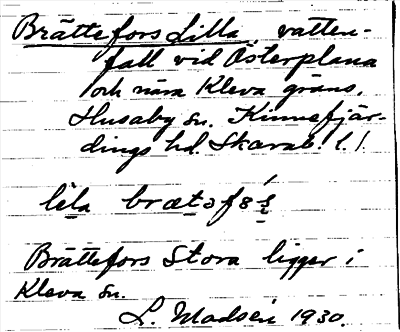 Brättefors Lilla, vatten-
fall vid Österplana
och nära Kleva gräns,
Husaby sn. Kinnefjär-
dings hd. Skarab. l.
lila
Brättefors Stora ligger i
Kleva sn.
L. Madsén 1930.